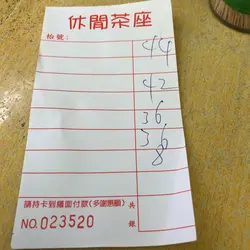 休閒茶座
枱號：
44
42
36
36
8
請持卡到櫃面付款(多謝惠顧)
共銀
NO. 023520